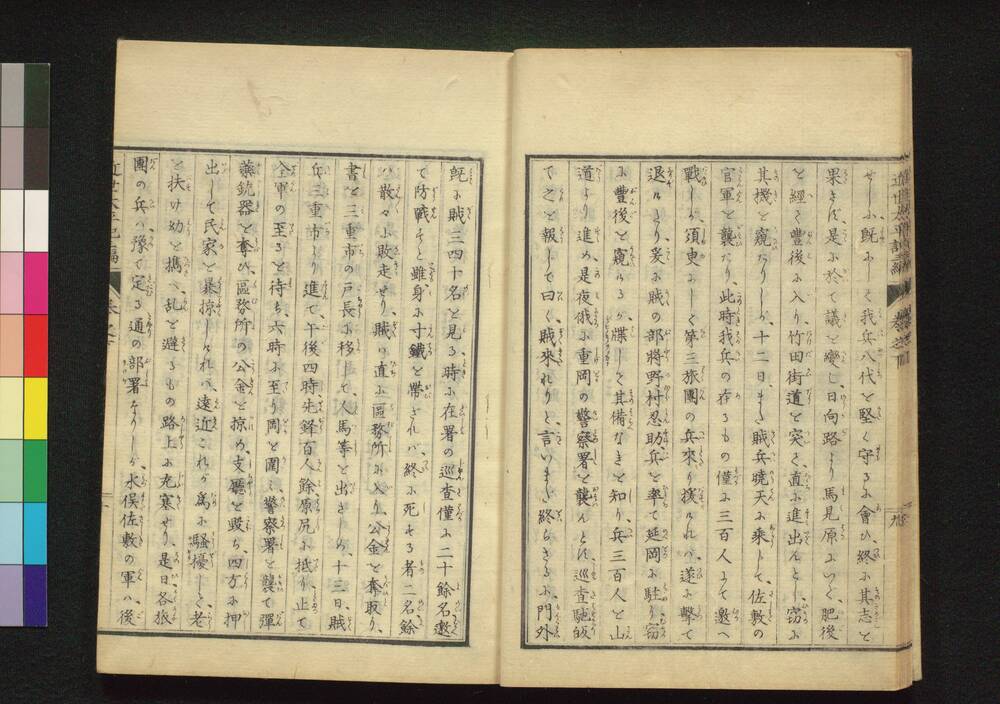 せしふ既ふして我兵八代を堅く守るふ會ひ終ふ其志を
果さば是ふ於て議を變し日向路より馬見原ふいで肥後
を經て豊後ふ入り竹田街道を突て直ふ進出んとし窃ふ
其機を窺たりしが十二日また賊兵曉天ふ乘して佐敷の
官軍を襲たり此時我兵の存るもの僅ふ三百人よて邀へ
戰しが須臾ふして第三旅團の兵來り援ければ遂ふ擊て
退けたり爰ふ賊の部將野村忍助兵を率て延岡ふ駐り窃
ふ豊後を窺けるが諜して其備なきを知り兵三百人を山
道より進め是夜俄ふ重岡の警察署を襲んとん巡査馳皈
て之を報して曰く賊來れりと言いまだ終らざるふ門外
既ふ賊三四十名を見る時ふ在署の巡査僅ふ二十餘名邀
て防戰すと雖身ふ寸鐵を帶ざれバ終ふ死する者二名餘
ハ散々ふ敗走せり賊ハ直ふ區務所ふ入り公金を奪取り
書を三重市の戸長ふ移して人馬等を出さしめ十三日賊
兵三重市より進て午後四時先鋒百人餘原尻ふ抵り止て
全軍の至るを待ち六時ふ至り岡を圍ミ警察署を襲て彈
藥銃器を奪ひ區務所の公金を掠め支廳を毀ち四方ふ押
出して民家を暴掠しければ遠近これが爲ふ騷擾して老
を扶け幼を携へ乱を避るもの路上ふ充塞せり是日各旅
團の兵ハ豫て定る通の部署なりしが水俣佐敷の軍ハ後